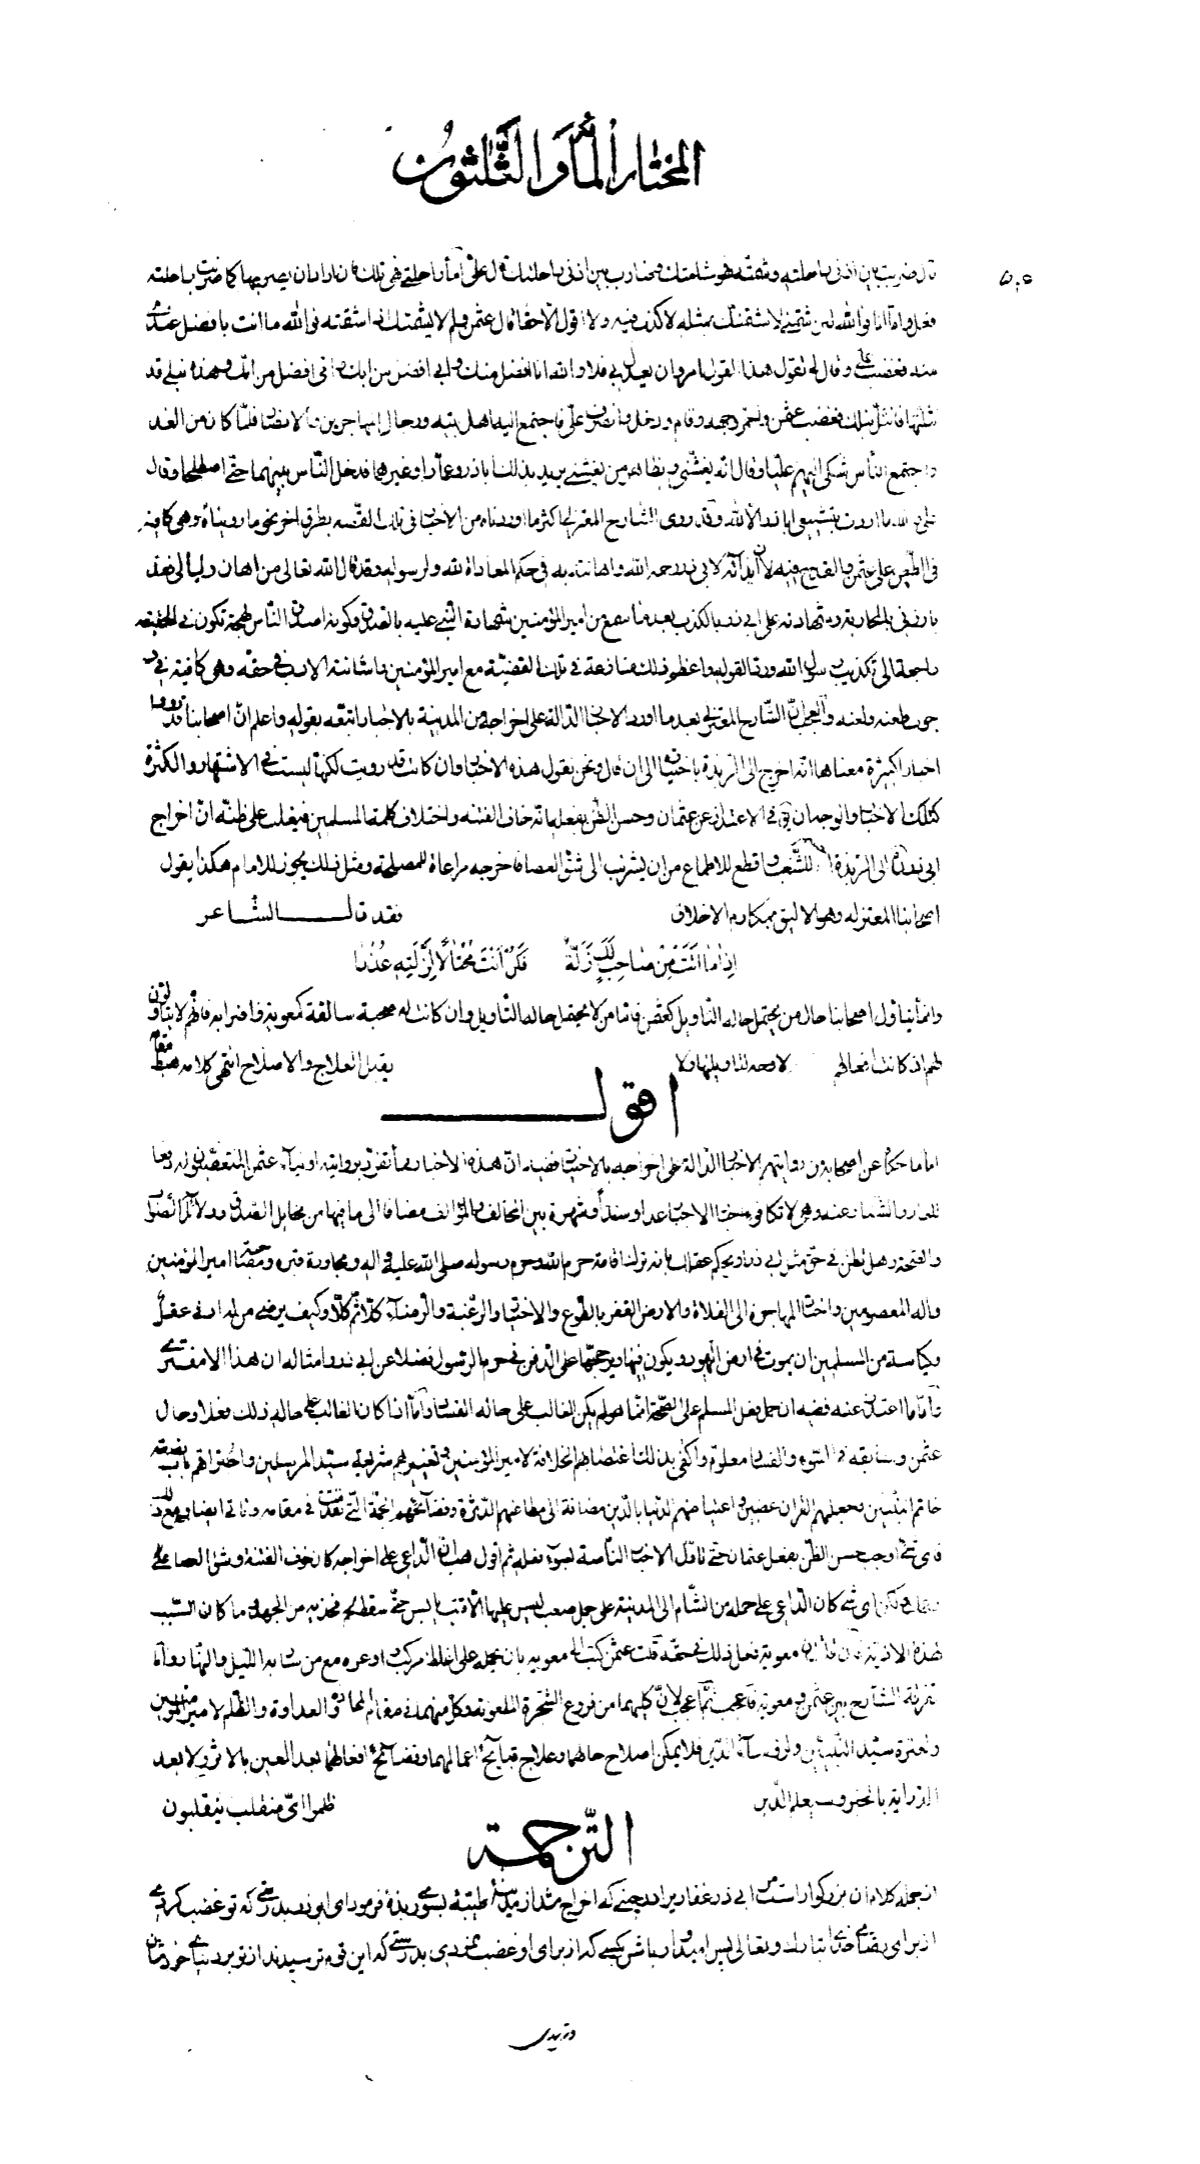 المختار المأة والثلثون
قال ضربت بين اذنى راحلته وشتمته فهو شاتمك وضارب بين اذنى راحلتك قال على أما راحلتى فهى تلك فان اراد ان يضربها كما ضربت راحلته
فعل واما انا فوالله لئن شتمنى لاشتمنك بمثله لا كذب فيه ولا اقول الا حقا قال عثمن ولم لا يشتمك اذا شتمته فوالله ما انت بافضل عندى
منه فغضب على وقال لى تقول هذا القول امروان يعدل بى فلا والله انا افضل منك وابى افضل من ابيك وامى افضل من امك وهذه نبلى قد
نثلتها فانثل نبلك فغضب عثمن واحمر وجهه وقام ودخل وانصرف على فاجتمع اليه اهل بيته ورجال المهاجرين والانصار فلما كان من الغد
واجتمع الناس شكى اليهم عليا وقال انه يغشنى ويظاهر من يغشنى يريد بذلك اباذر وعمارا وغيرهما فدخل الناس بينهما حتى اصطلحا وقال
على والله ما اردت بتشييعى اباذر الا الله وقد روى الشارح المعتزلى اكثر ما اوردناه من الاخبار فى تلك القصة بطرق اخر نحو ما رويناه وهى كافية
فى الطعن على عثمن والقدح فيه لان ايذائه لابى ذر رحمه الله واهانته به فى حكم المعاداة لله ولرسوله وقد قال الله تعالى من اهان وليا لى فقد
بارزنى بالمحاربة وشهادته على ابى ذر بالكذب بعد ما سمع من امير المؤمنين شهادة النبى عليه بالصدق وكونه اصدق الناس لهجة تكون فى الحقيقة
راجعة الى تكذيب رسول الله وردا لقوله واعظم ذلك منازعته فى تلك القضية مع امير المؤمنين واسائته الادب فى حقه وهى كافية فى
جواز طعنه ولعنه والعجب ان الشارح المعتزلى بعد ما اورد الاخبار الدالة على اخراجه من المدينة بالاجبار اتبعه بقوله واعلم ان اصحابنا قد رووا
اخبارا كثيرة معناها انه اخرج الى الربذة باختياره الى ان قال ونحن نقول هذه الاخبار وان كانت قد رويت لكنها ليست فى الاشتهار والكثرة
كتلك الاخبار والوجه ان يقال فى الاعتذار عن عثمان وحسن الظن بفعله انه خاف الفتنة واختلاف كلمة المسلمين فغلب على ظنه ان اخراج
ابى ذر الى الربذة احسم للشغب واقطع للاطماع من ان يشرئب الى شق العصا فاخرجه مراعاة للمصلحة ومثل ذلك يجوز للامام هكذا يقول
اصحابنا المعتزله وهو الاليق بمكارم الاخلاق فقد قال الشاعر
اذا ما اتت من صاحب لك زلة فكن انت محتالا لزلته عذرا
وانما يتأول اصحابنا حال من يحتمل حاله التأويل كعثمن فاما من لا يحتمل حاله التأويل وان كانت له صحبة سالفة كمعوية واضرابه فانهم لا يتأولون
لهم اذ كانت افعالهم لا وجه لتأويلها ولا يقبل العلاج والاصلاح انتهى كلامه هبط مقامه
اقول
اما ما حكاه عن اصحابه من روايتهم الاخبار الدالة على اخراجه بالاختيار ففيه ان هذه الاخبار مما تفرد بروايته اولياء عثمن المتعصبون له دفعا
للعار والشنار عنه وهى لا تكافوء الاخبار عددا وسندا وشهرة بين المخالف والمؤالف مضافا الى ما فيها من مخايل الصدق ودلائل الصواب
والصحة وهل يظن فى حق مثل ابى ذر او يحكم عقل بانه ترك اقامة حرم الله وحرم رسوله صلى الله عليه واله ومجاورة قبره وصحبة امير المؤمنين
واله المعصومين واختار المهاجرة الى الفلاة والارض القفر بالطوع والاختيار والرغبة والرضاء كلا ثم كلا وكيف يرضى من له ادنى عقل
وكياسة من المسلمين ان يموت فى ارض اليهود ويكون فيها ويرجحها على الدفن فى حرم الرسول فضلا عن ابى ذر وامثاله ان هذا الا مفترى
وأما ما اعتذر عنه ففيه ان حمل فعل المسلم على الصحة انما هو لم يكن الغالب على حاله الفساد وأما اذا كان الغالب على حاله ذلك فلا وحال
عثمن وسابقه فى السوء والفساد معلوم واكفى بذلك اغتصابهم الخلافة لامير المؤمنين وتغييرهم شريعة سيد المرسلين واحراقهم باب بضعة
خاتم النبيين وجعلهم القران عضين واعتياضهم الدنيا بالدين مضافة الى مطاعنهم الدثرة وفضائحهم الجمة التى تقدمت فى مقامه وتاتى ايضا ومع ذلك
فاى شىء اوجب حسن الظن بفعل عثمان حتى تاول الاخبار الناصة لسوء فعله ثم اقول هب ان الداعى على اخراجه كان خوف الفتنة وشق العصا على
اى شىء كان الداعى على حمله من الشام الى المدينة على جمل صعب ليس عليها الا قتب يابس حتى سقط لحم فخذيه من الجهد وما كان السبب
لهذه الاذية فان قال ان معوية فعل ذلك فى حقه قلت عثمن كتب الى معوية بان يحمله على اغلظ مركب واوعره مع من سار به الليل والنهار وأما
تفرقة الشارح بين عثمن ومعوية فاعجب ثم اعجب لان كليهما من فروع الشجرة الملعونة وكل منهما فى مقام المحادة والعداوة والظلم لامير المؤمنين
ولعترة سيد النبيين ولرؤساء الدين فلا يمكن اصلاح حالهما وعلاج قبايح اعمالهما وفضائح افعالهما بعد العين بالاثر ولا بعد
الدراية بالخبر وسيعلم الذين ظلموا اى منقلب ينقلبون
الترجمة
از جمله كلام ان بزركوار است مر ابى ذر غفاريرا در حينى كه اخراج شد از مدينه طيبه بسوى ربذه فرمود اى ابوذر بدرستى كه تو غضب كردى
از براى رضاى خداى تبارك وتعالى پس اميدوار باش بكسى كه از براى او غضب نمودى بدرستى كه اين قوم ترسيدند از تو بر دنياى خودشان
و ترسيدى